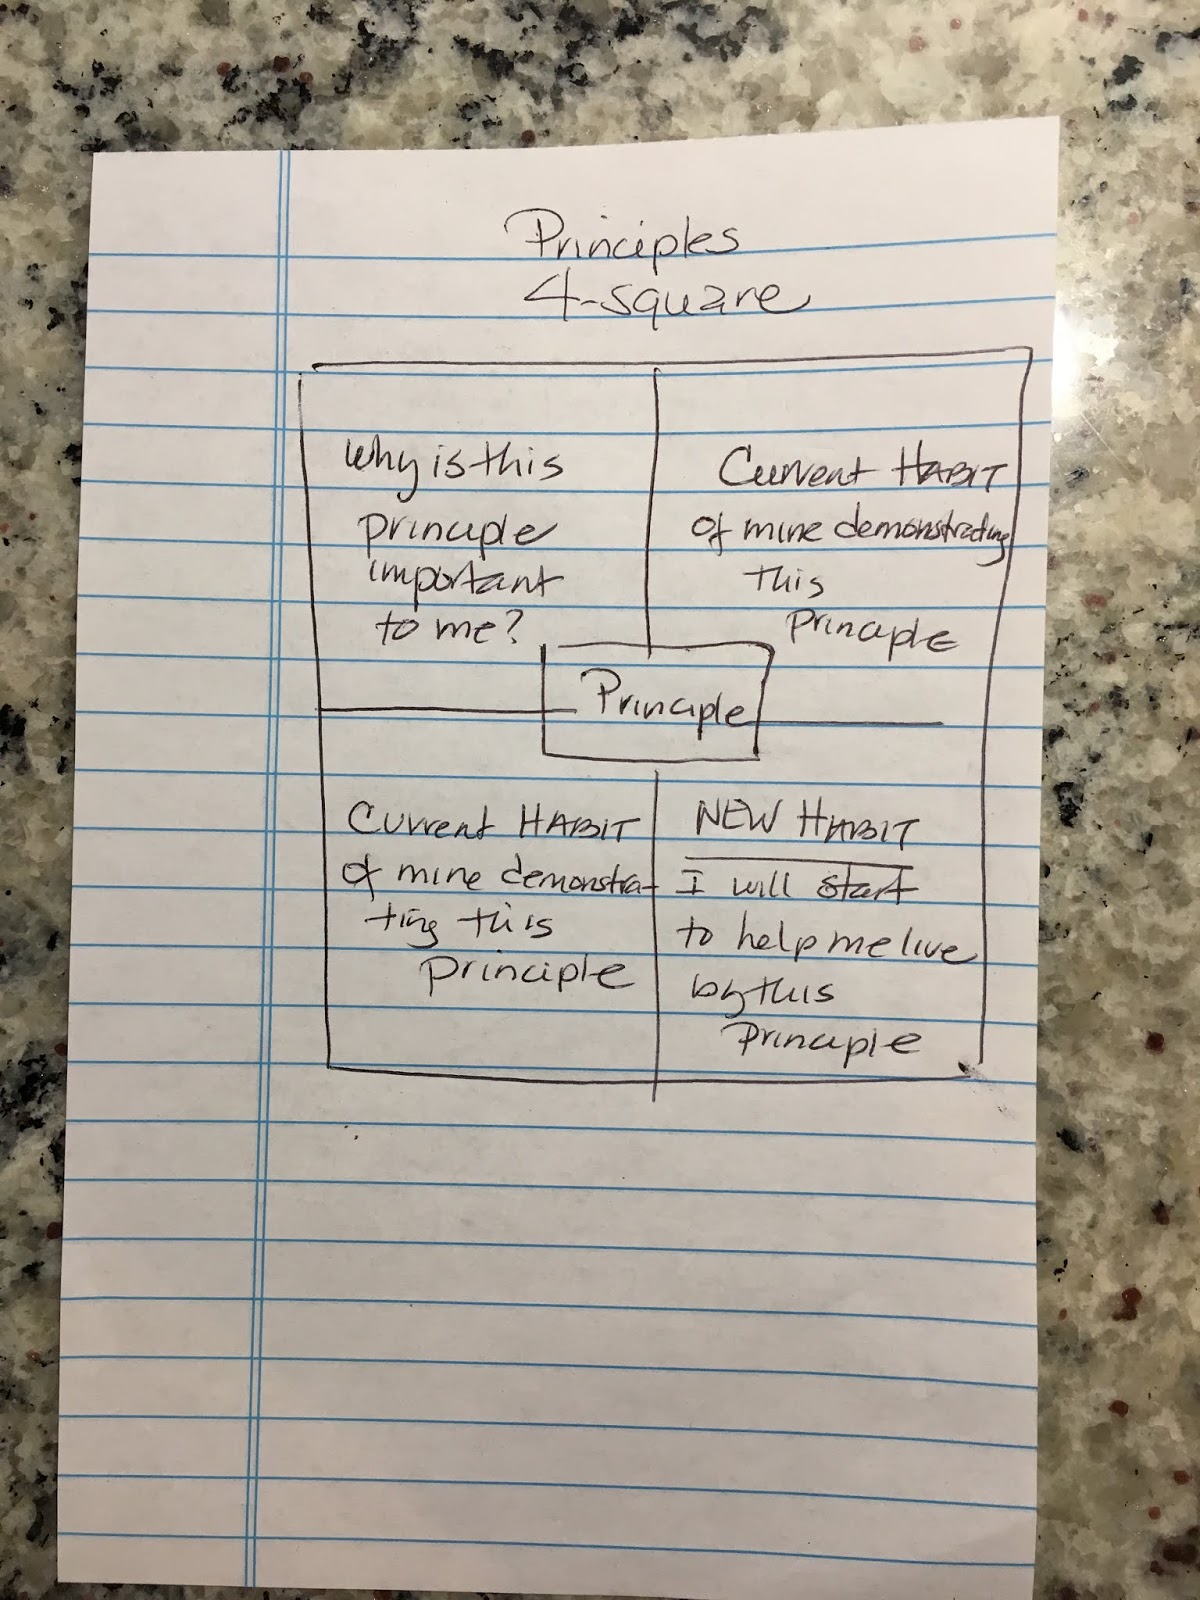 Principles
4-square
Why is this
principle
important
to me?
Current HABIT
of mine demonstrating
this
Principle
Principle
Current HABIT
of mine demonstra-
ting this
principle
NEW HABIT
I will start
to help me live
by this
Principle